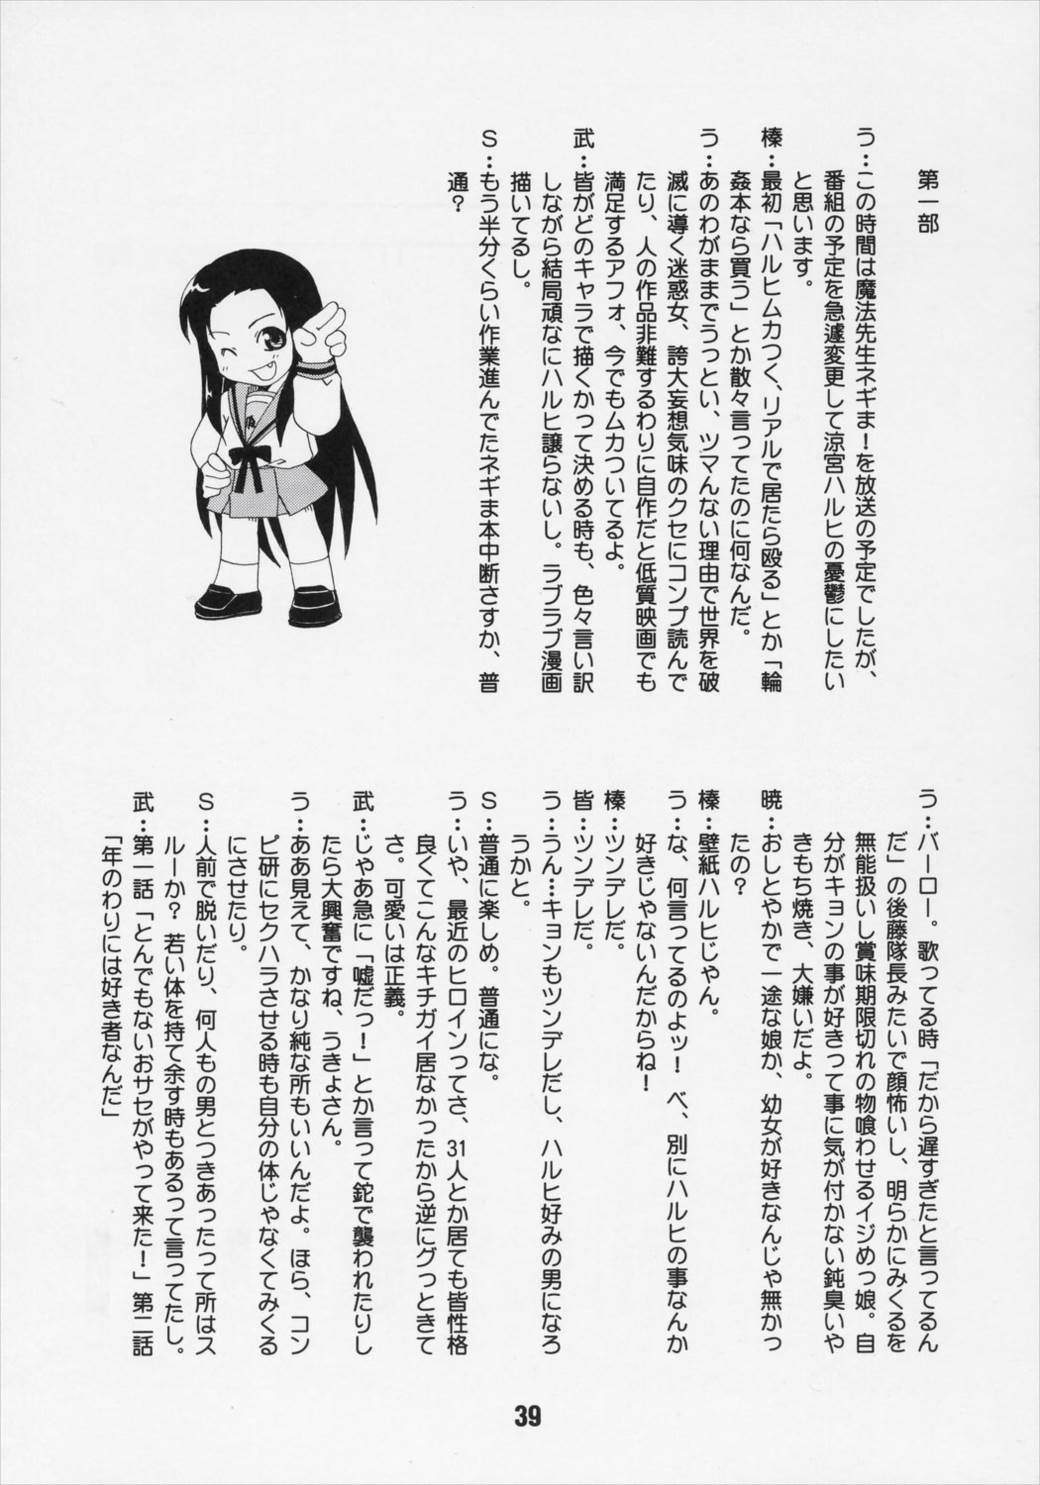 第一部
う…この時間は魔法先生ネギま！を放送の予定でしたが、
番組の予定を急遽変更して涼宮ハルヒの憂鬱にしたい
と思います。
榛…最初「ハルヒムカつく、リアルで居たら殴る」とか「輪
姦本なら買う」とか散々言ってたのに何なんだ。
う…あのわがままでうっとい、ツマんない理由で世界を破
滅に導く迷惑女、誇大妄想気味のクセにコンプ読んで
たり、人の作品非難するわりに自作だと低質映画でも
満足するアフォ、今でもムカついてるよ。
武…皆がどのキャラで描くかって決める時も、色々言い訳
しながら結局頑なにハルヒ譲らないし。ラブラブ漫画
描いてるし。
S…もう半分くらい作業進んでたネギま本中断さすか、普
通？
う…バーロー。歌ってる時「だから遅すぎたと言ってるん
だ」の後藤隊長みたいで顔怖いし、明らかにみくるを
無能扱いし賞味期限切れの物喰わせるイジめっ娘。自
分がキョンの事が好きって事に気が付かない鈍臭いや
きもち焼き、大嫌いだよ。
暁…おしとやかで一途な娘か、幼女が好きなんじゃ無かっ
たの？
榛…壁紙ハルヒじゃん。
う…な、何言ってるのよッ！べ、別にハルヒの事なんか
好きじゃないんだからね！
榛…ツンデレだ。
皆…ツンデレだ。
う…うん…キョンもツンデレだし、ハルヒ好みの男になろ
うかと。
S…普通に楽しめ。普通にな。
う…いや、最近のヒロインってさ、31人とか居ても皆性格
良くてこんなキチガイ居なかったから逆にグっときて
さ。可愛いは正義。
武…じゃあ急に「嘘だっ！」とか言って鉈で襲われたりし
たら大興奮ですね、うきょさん。
う…ああ見えて、かなり純な所もいいんだよ。ほら、コン
ピ研にセクハラさせる時も自分の体じゃなくてみくる
にさせたり。
S…人前で脱いだり、何人もの男とつきあったって所はス
ルーか？若い体を持て余す時もあるって言ってたし。
武…第一話「とんでもないおサセがやって来た！」第二話
「年のわりには好き者なんだ」
39